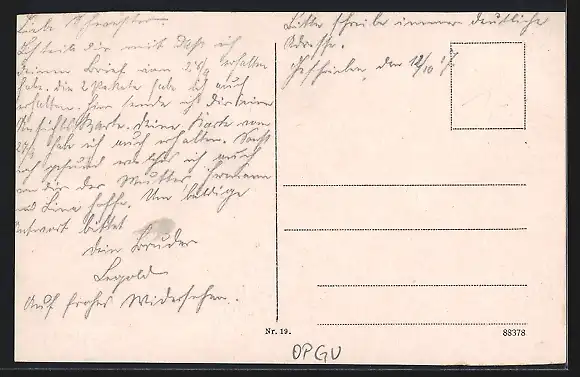 Liebe Schwester
Ich teile dir mit Daß ich
deinen Brief vom 28/9 erhalten
habe. die 2 Pakete habe ich auch
erhalten. hier sende ich dir eine
Ansichts Karte. deine Karte vom
29/9 hab ich auch erhalten. Sonst
noch gesund welches ich auch
von dir der Mutter Hermann
und Lina hoffe. Um baldige
Antwort bittet
dein Bruder
Lepold
Auf frohes Wiedersehen.
Bitte schreibe immer deutliche
Adresse.
Geschrieben den 12/10 17.
Nr. 19.
88378
OPGV